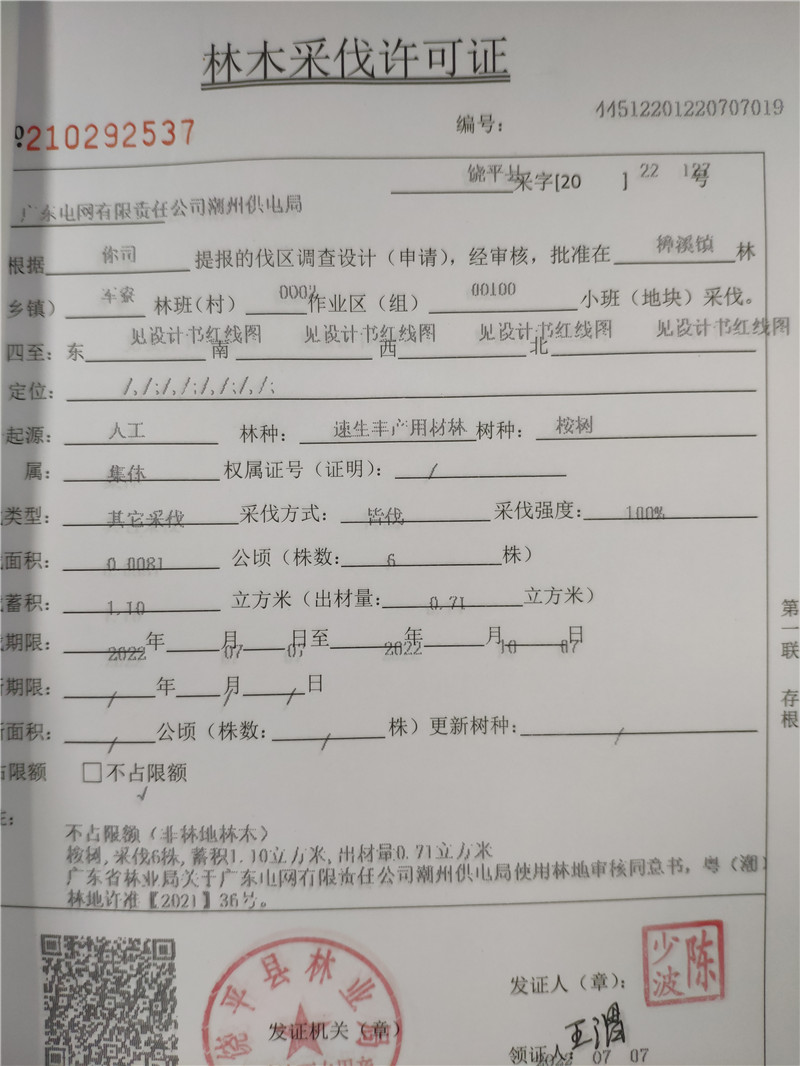 林木采伐许可证
№210292537 编号： 44512201220707019
饶平县采字[20 22 ] 127 号
广东电网有限责任公司潮州供电局
根据 你司 提报的伐区调查设计（申请），经审核，批准在 樟溪镇 林
乡镇） 军寮 林班（村） 0002 作业区（组） 00100 小班（地块）采伐。
四至：东 见设计书红线图 南 见设计书红线图 西 见设计书红线图 北 见设计书红线图
定位： /,/;/,/;/,/;/,/;
起源： 人工 林种： 速生丰产用材林 树种： 桉树
属： 集体 权属证号（证明）： /
类型： 其它采伐 采伐方式： 皆伐 采伐强度： 100%
面积： 0.0081 公顷（株数： 6 株）
蓄积： 1.10 立方米（出材量： 0.71 立方米）
期限： 2022 年 07 月 07 日至 2022 年 10 月 07 日
期限： / 年 / 月 / 日
面积： / 公顷（株数： / 株）更新树种： /
占限额 □不占限额 √
注：
不占限额（非林地林木）
桉树,采伐6株,蓄积1.10立方米,出材量0.71立方米
广东省林业局关于广东电网有限责任公司潮州供电局使用林地审核同意书，粤（潮）
林地许准〖2021〗36号。
第一联 存根
饶平县林业局
发证机关（章）
发证人（章）： 陈少波
领证人：
2022 07 07